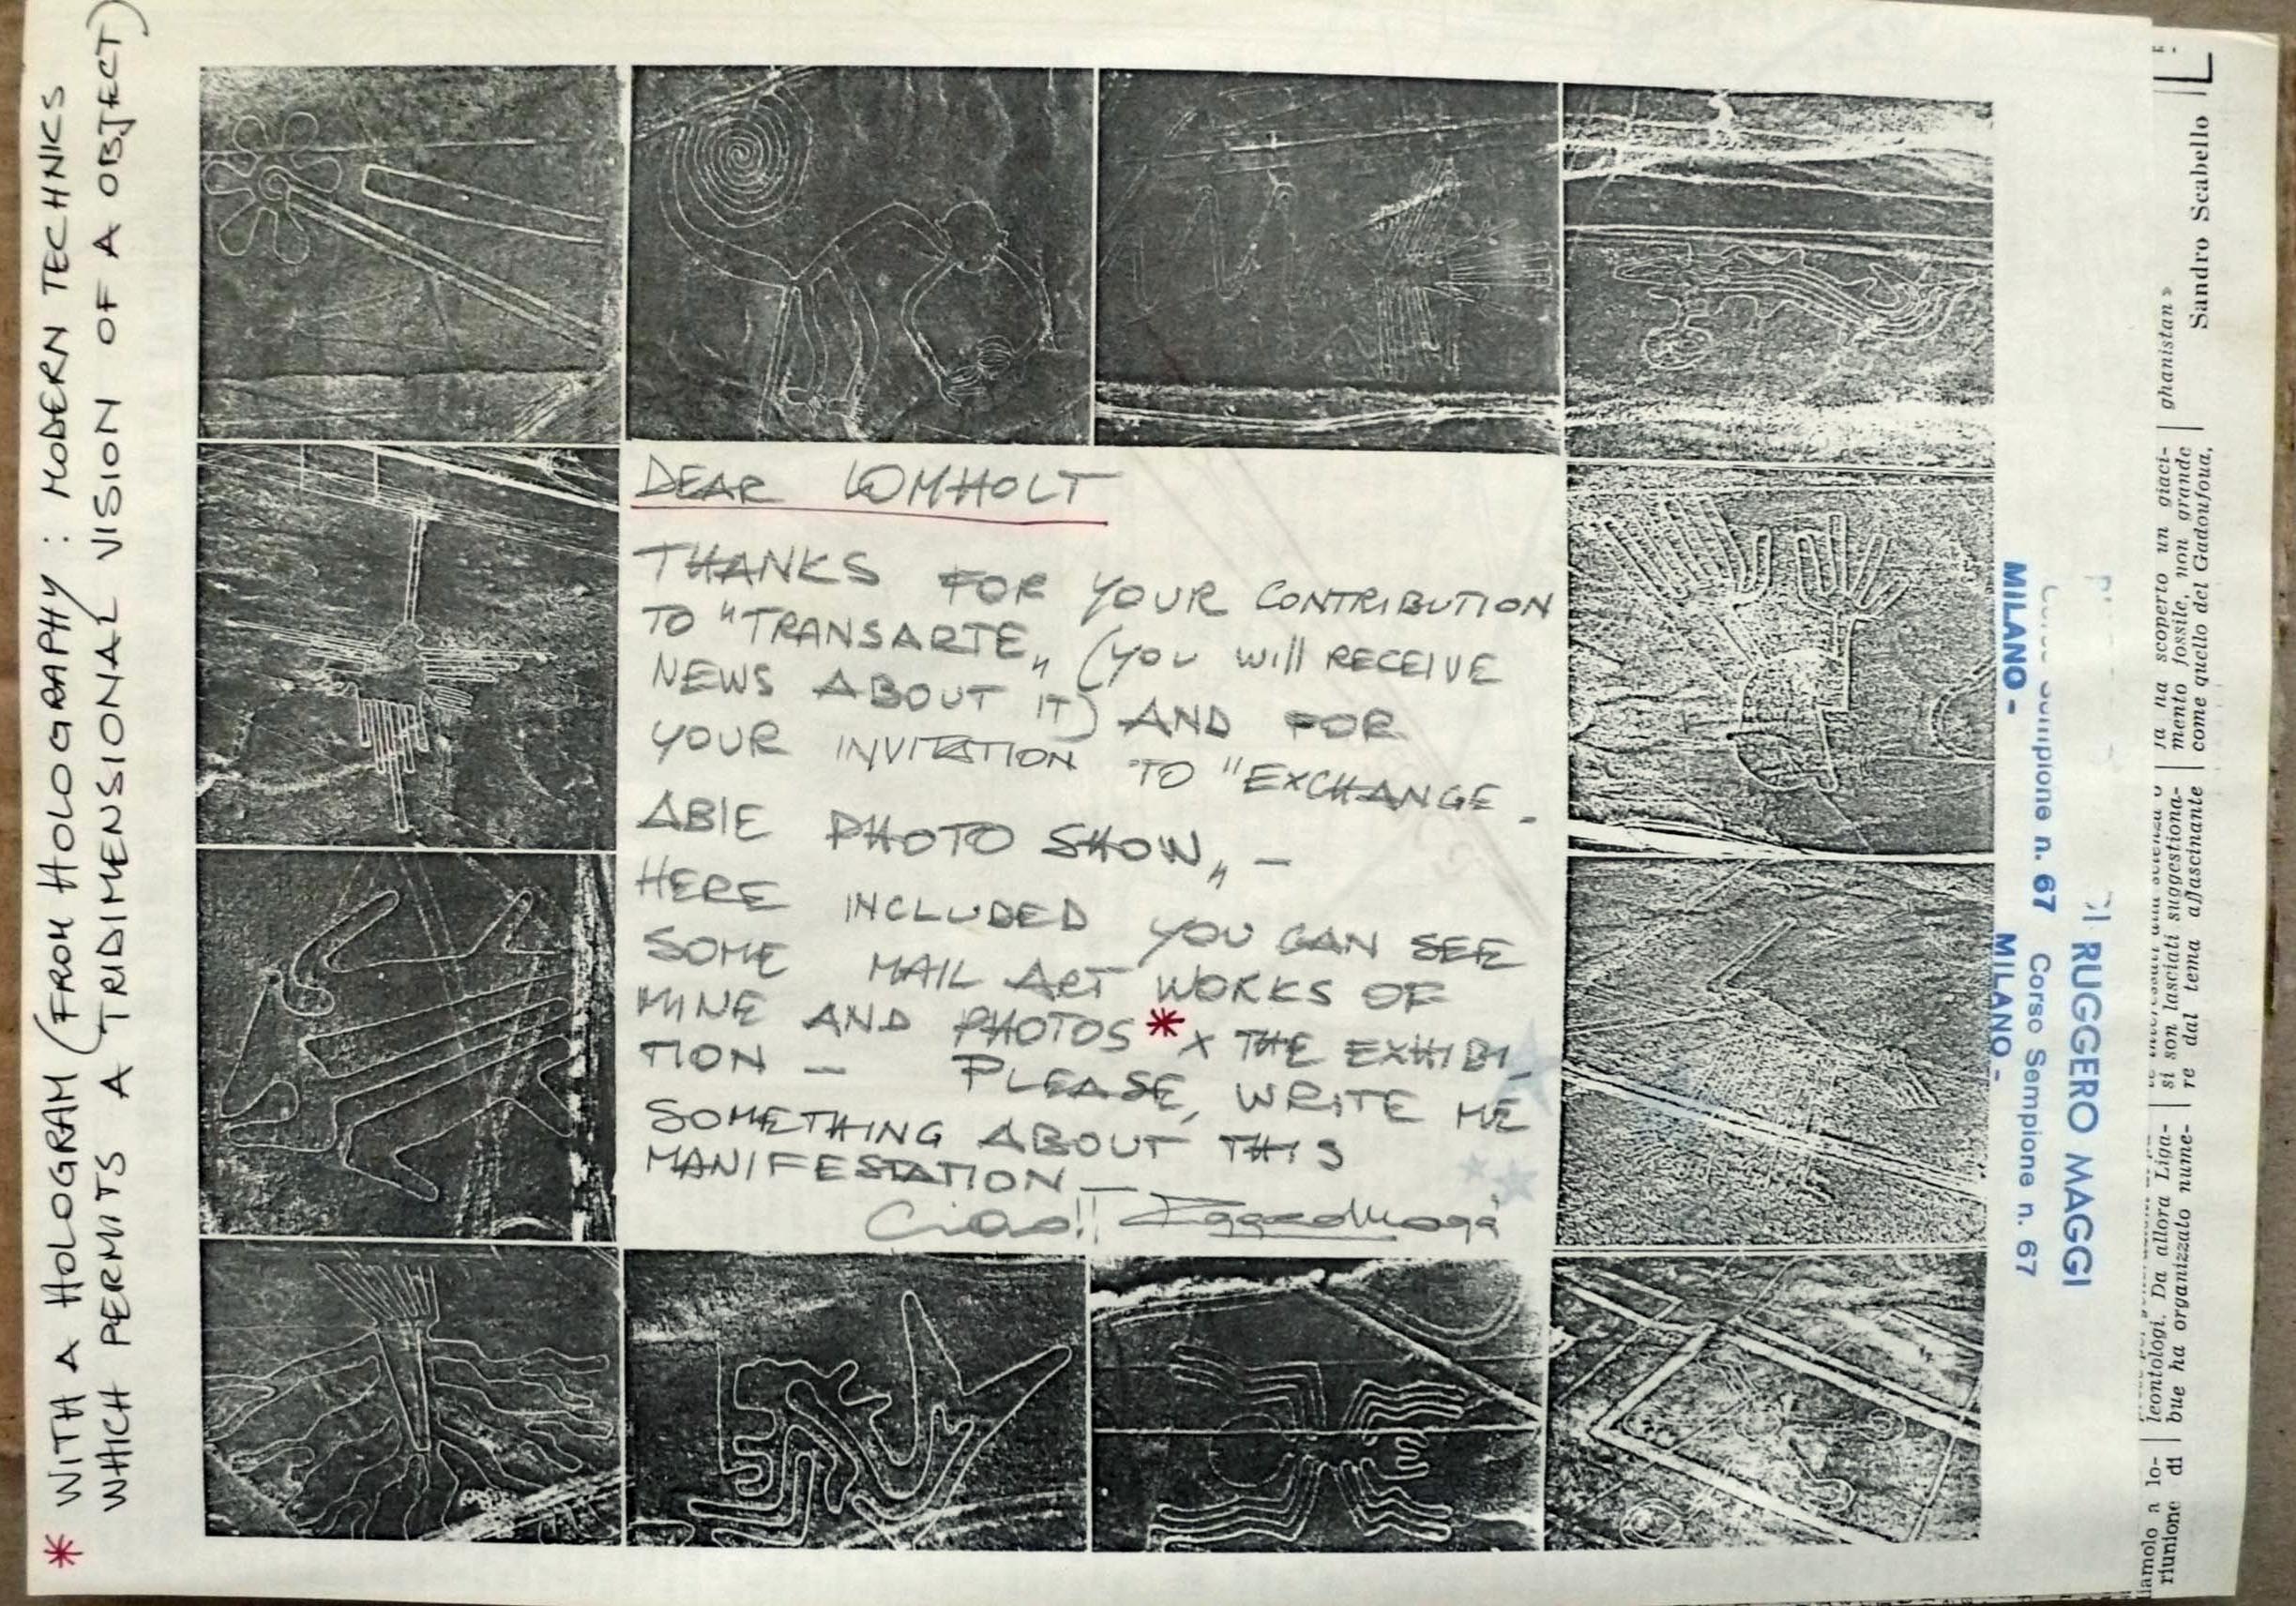 DEAR LOMHOLT
THANKS FOR YOUR CONTRIBUTION
TO "TRANSARTE„ (YOU WILL RECEIVE
NEWS ABOUT IT) AND FOR
YOUR INVITATION TO "EXCHANGE -
ABLE PHOTO SHOW„ -
HERE INCLUDED YOU CAN SEE
SOME MAIL ART WORKS OF
MINE AND PHOTOS * x THE EXHIBI_
TION — PLEASE, WRITE ME
SOMETHING ABOUT THIS
MANIFESTATION —
Ciao!!
* WITH A HOLOGRAM (FROM HOLOGRAPHY : MODERN TECHNICS
WHICH PERMITS A TRIDIMENSIONAL VISION OF A OBJECT)
RUGGERO MAGGI
Sempione n. 67 Corso Sempione n. 67
MILANO - MILANO -
Sandro Scabello
ghanistan»
ha scoperto un giaci-
mento fossile, non grande
come quello del Gadoufoua,
si son lasciati suggestiona-
re dal tema affascinante
leontologi. Da allora Liga-
bue ha organizzato nume-
lo-
riunione di